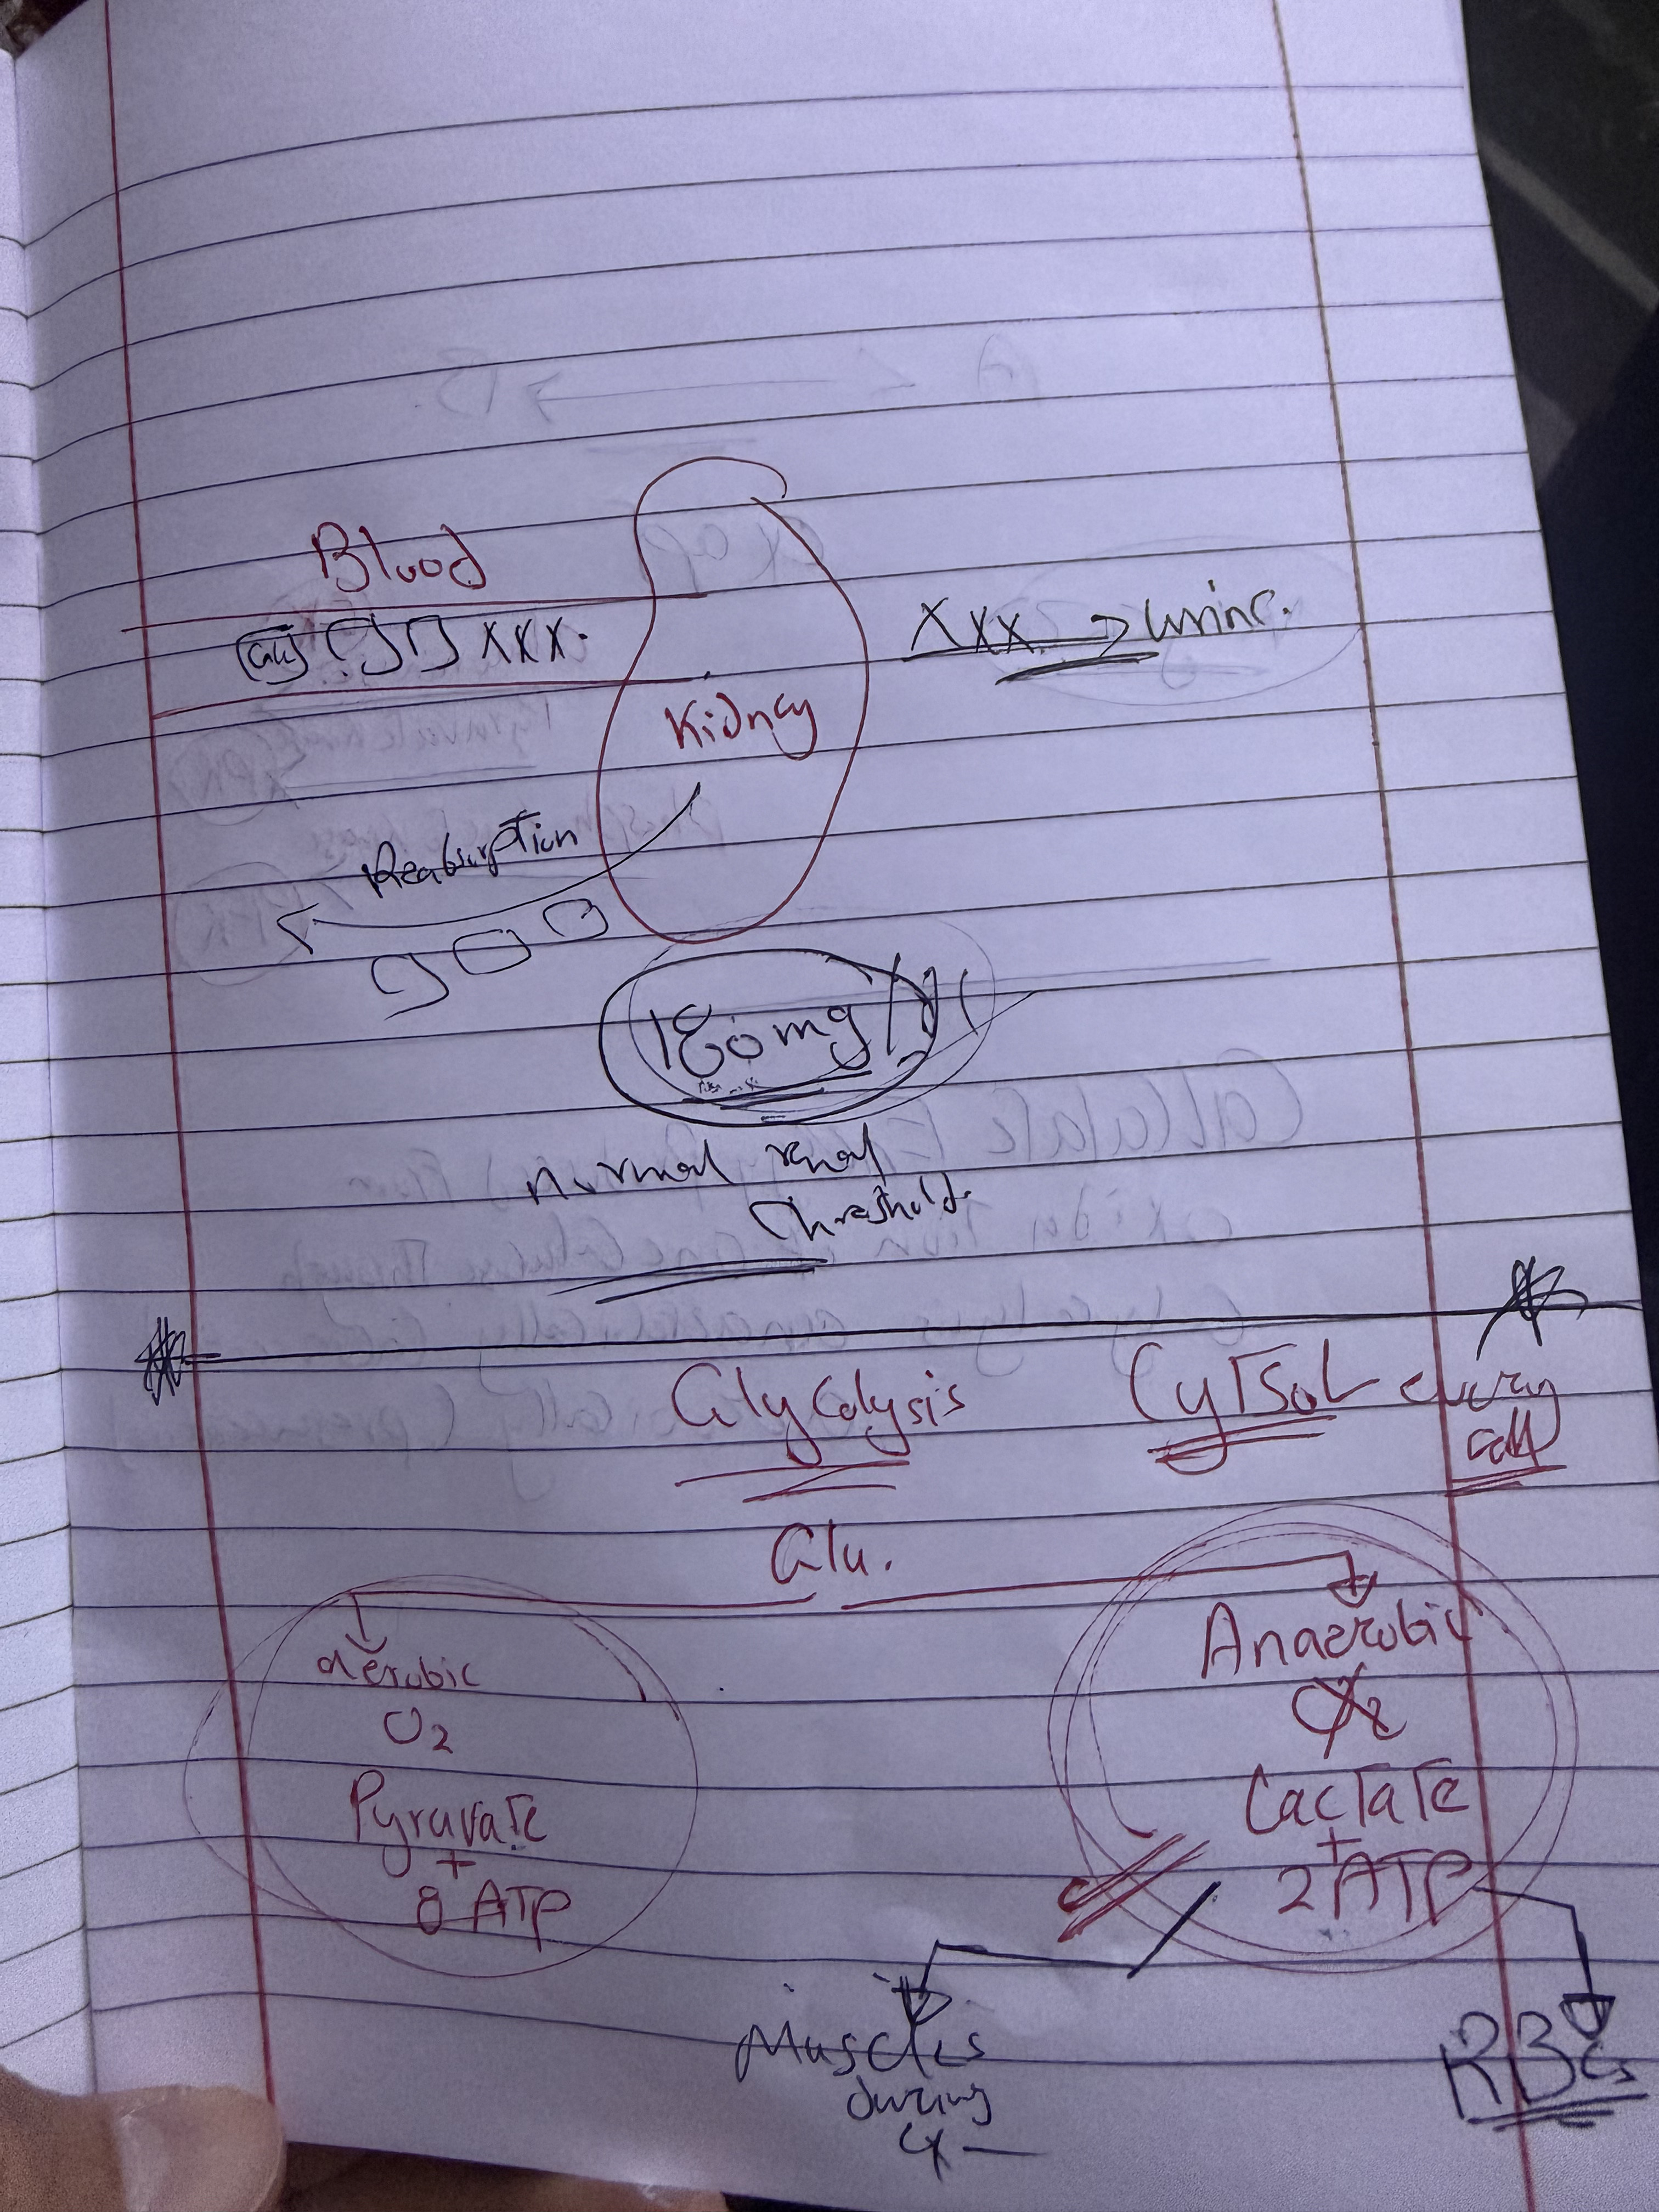 Blood
Glu XXX.
XXX → Urine.
Kidney
Reabsorption
180 mg/dl
normal renal
threshold
Glycolysis
CyTSoL every
cell
Glu.
aerobic
O2
Pyruvate
+
8 ATP
Anaerobic
O2
Lactate
+
2 ATP
Muscles
during
ex
RBCs